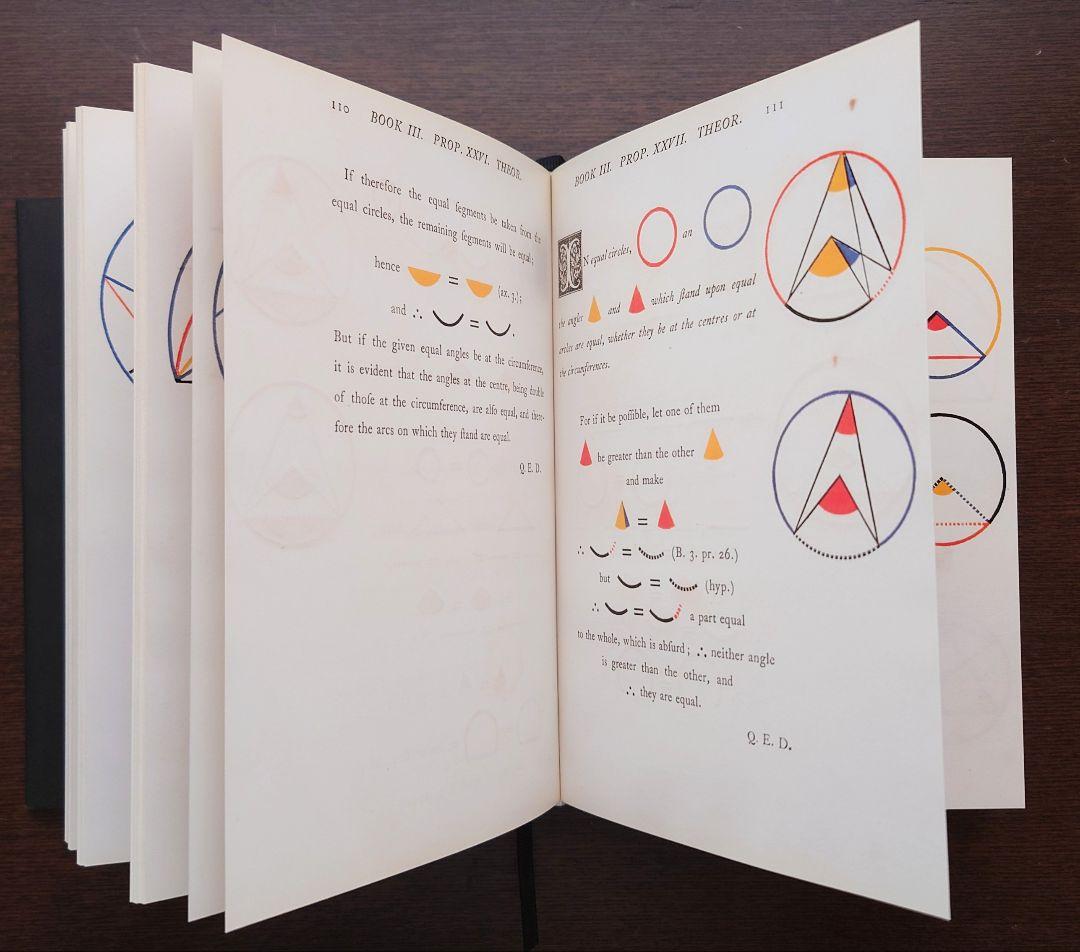 110
BOOK III. PROP. XXVI. THEOR.
If therefore the equal ſegments be taken from the
equal circles, the remaining ſegments will be equal;
hence = (ax. 3.);
and ∴ = .
But if the given equal angles be at the circumference,
it is evident that the angles at the centre, being double
of thoſe at the circumference, are alſo equal, and there-
fore the arcs on which they ſtand are equal.
Q. E. D.
111
BOOK III. PROP. XXVII. THEOR.
IN equal circles, an
the angles and which ſtand upon equal
circles are equal, whether they be at the centres or at
the circumferences.
For if it be poſſible, let one of them
be greater than the other
and make
=
∴ = (B. 3. pr. 26.)
but = (hyp.)
∴ = a part equal
to the whole, which is abſurd; ∴ neither angle
is greater than the other, and
∴ they are equal.
Q. E. D.